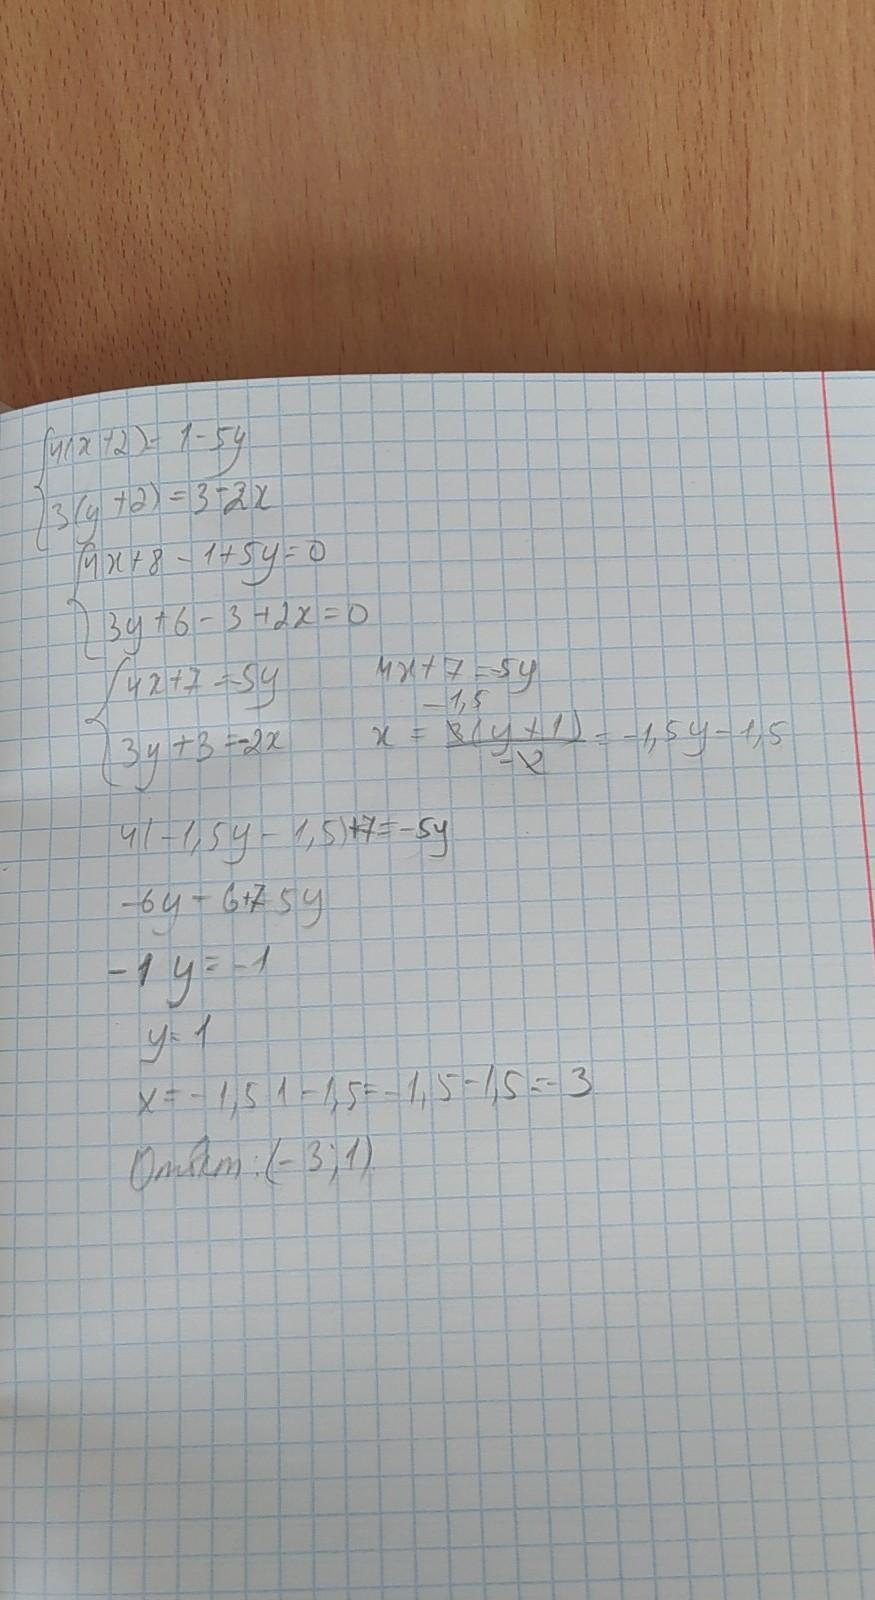 {4(x+2)= 1-5y
{3(y+2)=3-2x
{4x+8-1+5y=0
{3y+6-3+2x=0
{4x+7=-5y
{3y+3=-2x
4x+7=-5y
-1,5
x = 3(y+1)/-2 = -1,5y-1,5
4(-1,5y-1,5)+7=-5y
-6y-6+7 5y
-1 y=-1
y=1
x=-1,5 1-1,5=-1,5-1,5=-3
Ответ:(-3;1)